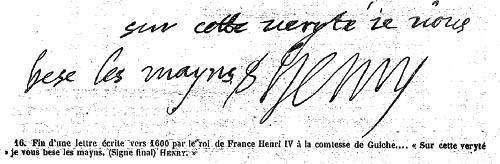 sur cette veryté je vous
bese les mayns Henry
16. Fin d'une lettre écrite vers 1600 par le roi de France Henri IV à la comtesse de Guiche.... « Sur cette veryté
» je vous bese les mayns. (Signe final) HENRY. »